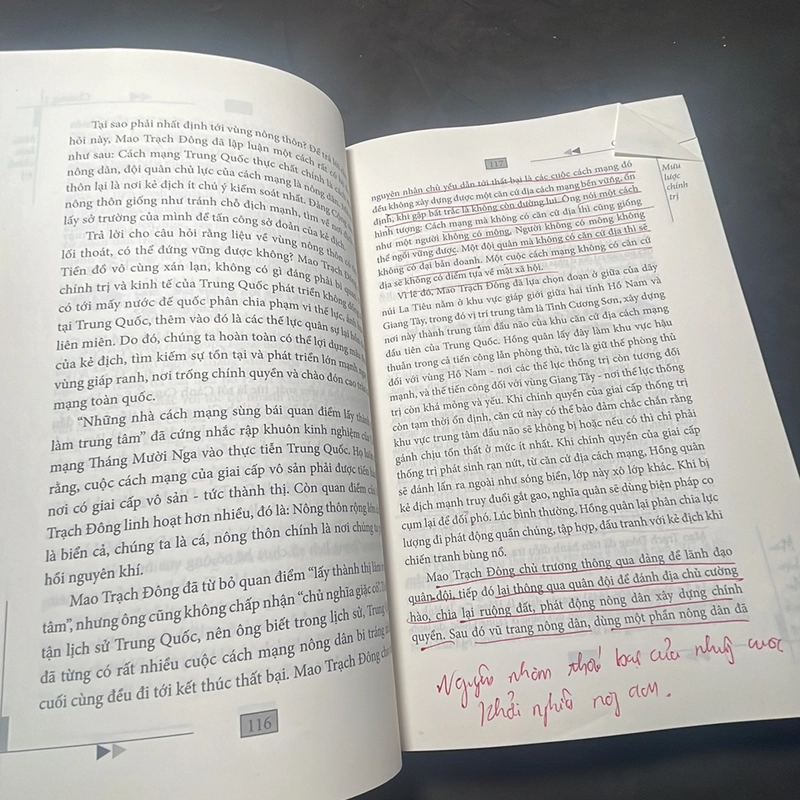 Tại sao phải nhất định tới vùng nông thôn? Để trả
hỏi này, Mao Trạch Đông đã lập luận một cách rất
như sau: Cách mạng Trung Quốc thực chất chính là
nông dân, đội quân chủ lực của cách mạng là nông dân
thôn lại là nơi kẻ địch ít chú ý kiểm soát nhất. Đảng
nông thôn giống như tránh chỗ địch mạnh, tìm về nơi
lấy sở trường của mình để tấn công sở đoản của kẻ địch.
Trả lời cho câu hỏi rằng liệu về vùng nông thôn
lối thoát, có thể đứng vững được không? Mao Trạch
Tiền đồ vô cùng xán lạn, không có gì đáng phải bi
chính trị và kinh tế của Trung Quốc phát triển không đồng
có tới mấy nước đế quốc phân chia phạm vi thế lực,
tại Trung Quốc, thêm vào đó là các thế lực quân sự
liên miên. Do đó, chúng ta hoàn toàn có thể lợi dụng
của kẻ địch, tìm kiếm sự tồn tại và phát triển lớn mạnh
vùng giáp ranh, nơi trống chính quyền và chào đón cao trào
mạng toàn quốc.
"Những nhà cách mạng sùng bái quan điểm lấy thành
làm trung tâm" đã cứng nhắc rập khuôn kinh nghiệm của
mạng Tháng Mười Nga vào thực tiễn Trung Quốc. Họ
rằng, cuộc cách mạng của giai cấp vô sản phải được tiến
nơi có giai cấp vô sản - tức thành thị. Còn quan điểm của
Trạch Đông linh hoạt hơn nhiều, đó là: Nông thôn rộng lớn
là biển cả, chúng ta là cá, nông thôn chính là nơi chúng ta
hồi nguyên khí.
Mao Trạch Đông đã từ bỏ quan điểm "lấy thành thị làm
tâm", nhưng ông cũng không chấp nhận "chủ nghĩa giặc cỏ".
tận lịch sử Trung Quốc, nên ông biết trong lịch sử, Trung
đã từng có rất nhiều cuộc cách mạng nông dân bi tráng
cuối cùng đều đi tới kết thúc thất bại. Mao Trạch Đông
116
117
Mưu
lược
chính
trị
nguyên nhân chủ yếu dẫn tới thất bại là các cuộc cách mạng đó
đều không xây dựng được một căn cứ địa cách mạng bền vững, ổn
định, khi gặp bất trắc là không còn đường lui. Ông nói một cách
hình tượng: Cách mạng mà không có căn cứ địa thì cũng giống
như một người không có mông. Người không có mông không
thể ngồi vững được. Một đội quân mà không có căn cứ địa thì sẽ
không có đại bản doanh. Một cuộc cách mạng không có căn cứ
địa sẽ không có điểm tựa về mặt xã hội.
Vì lẽ đó, Mao Trạch Đông đã lựa chọn đoạn ở giữa của dãy
núi La Tiêu nằm ở khu vực giáp giới giữa hai tỉnh Hồ Nam và
Giang Tây, trong đó vị trí trung tâm là Tỉnh Cương Sơn, xây dựng
nơi này thành trung tâm đầu não của khu căn cứ địa cách mạng
đầu tiên của Trung Quốc. Hồng quân lấy đây làm khu vực hậu
thuẫn trong cả tiến công lẫn phòng thủ, tức là giữ thế phòng thủ
đối với vùng Hồ Nam - nơi các thế lực thống trị còn tương đối
mạnh, và thế tiến công đối với vùng Giang Tây - nơi thế lực thống
trị còn khá mỏng và yếu. Khi chính quyền của giai cấp thống trị
còn tạm thời ổn định, căn cứ này có thể bảo đảm chắc chắn rằng
khu vực trung tâm đầu não sẽ không bị hoặc nếu có thì chỉ phải
gánh chịu tổn thất ở mức ít nhất. Khi chính quyền của giai cấp
thống trị phát sinh rạn nứt, từ căn cứ địa cách mạng, Hồng quân
sẽ đánh lấn ra ngoài như sóng biển, lớp này xô lớp khác. Khi bị
kẻ địch mạnh truy đuổi gắt gao, nghĩa quân sẽ dùng biện pháp co
cụm lại để đối phó. Lúc bình thường, Hồng quân lại phân chia lực
lượng đi phát động quần chúng, tập hợp, đấu tranh với kẻ địch khi
chiến tranh bùng nổ.
Mao Trạch Đông chủ trương thông qua đảng để lãnh đạo
quân đội, tiếp đó lại thông qua quân đội để đánh địa chủ cường
hào, chia lại ruộng đất, phát động nông dân xây dựng chính
quyền. Sau đó vũ trang nông dân, dùng một phần nông dân đã
Nguyên nhân thất bại của những cuộc
khởi nghĩa nông dân.